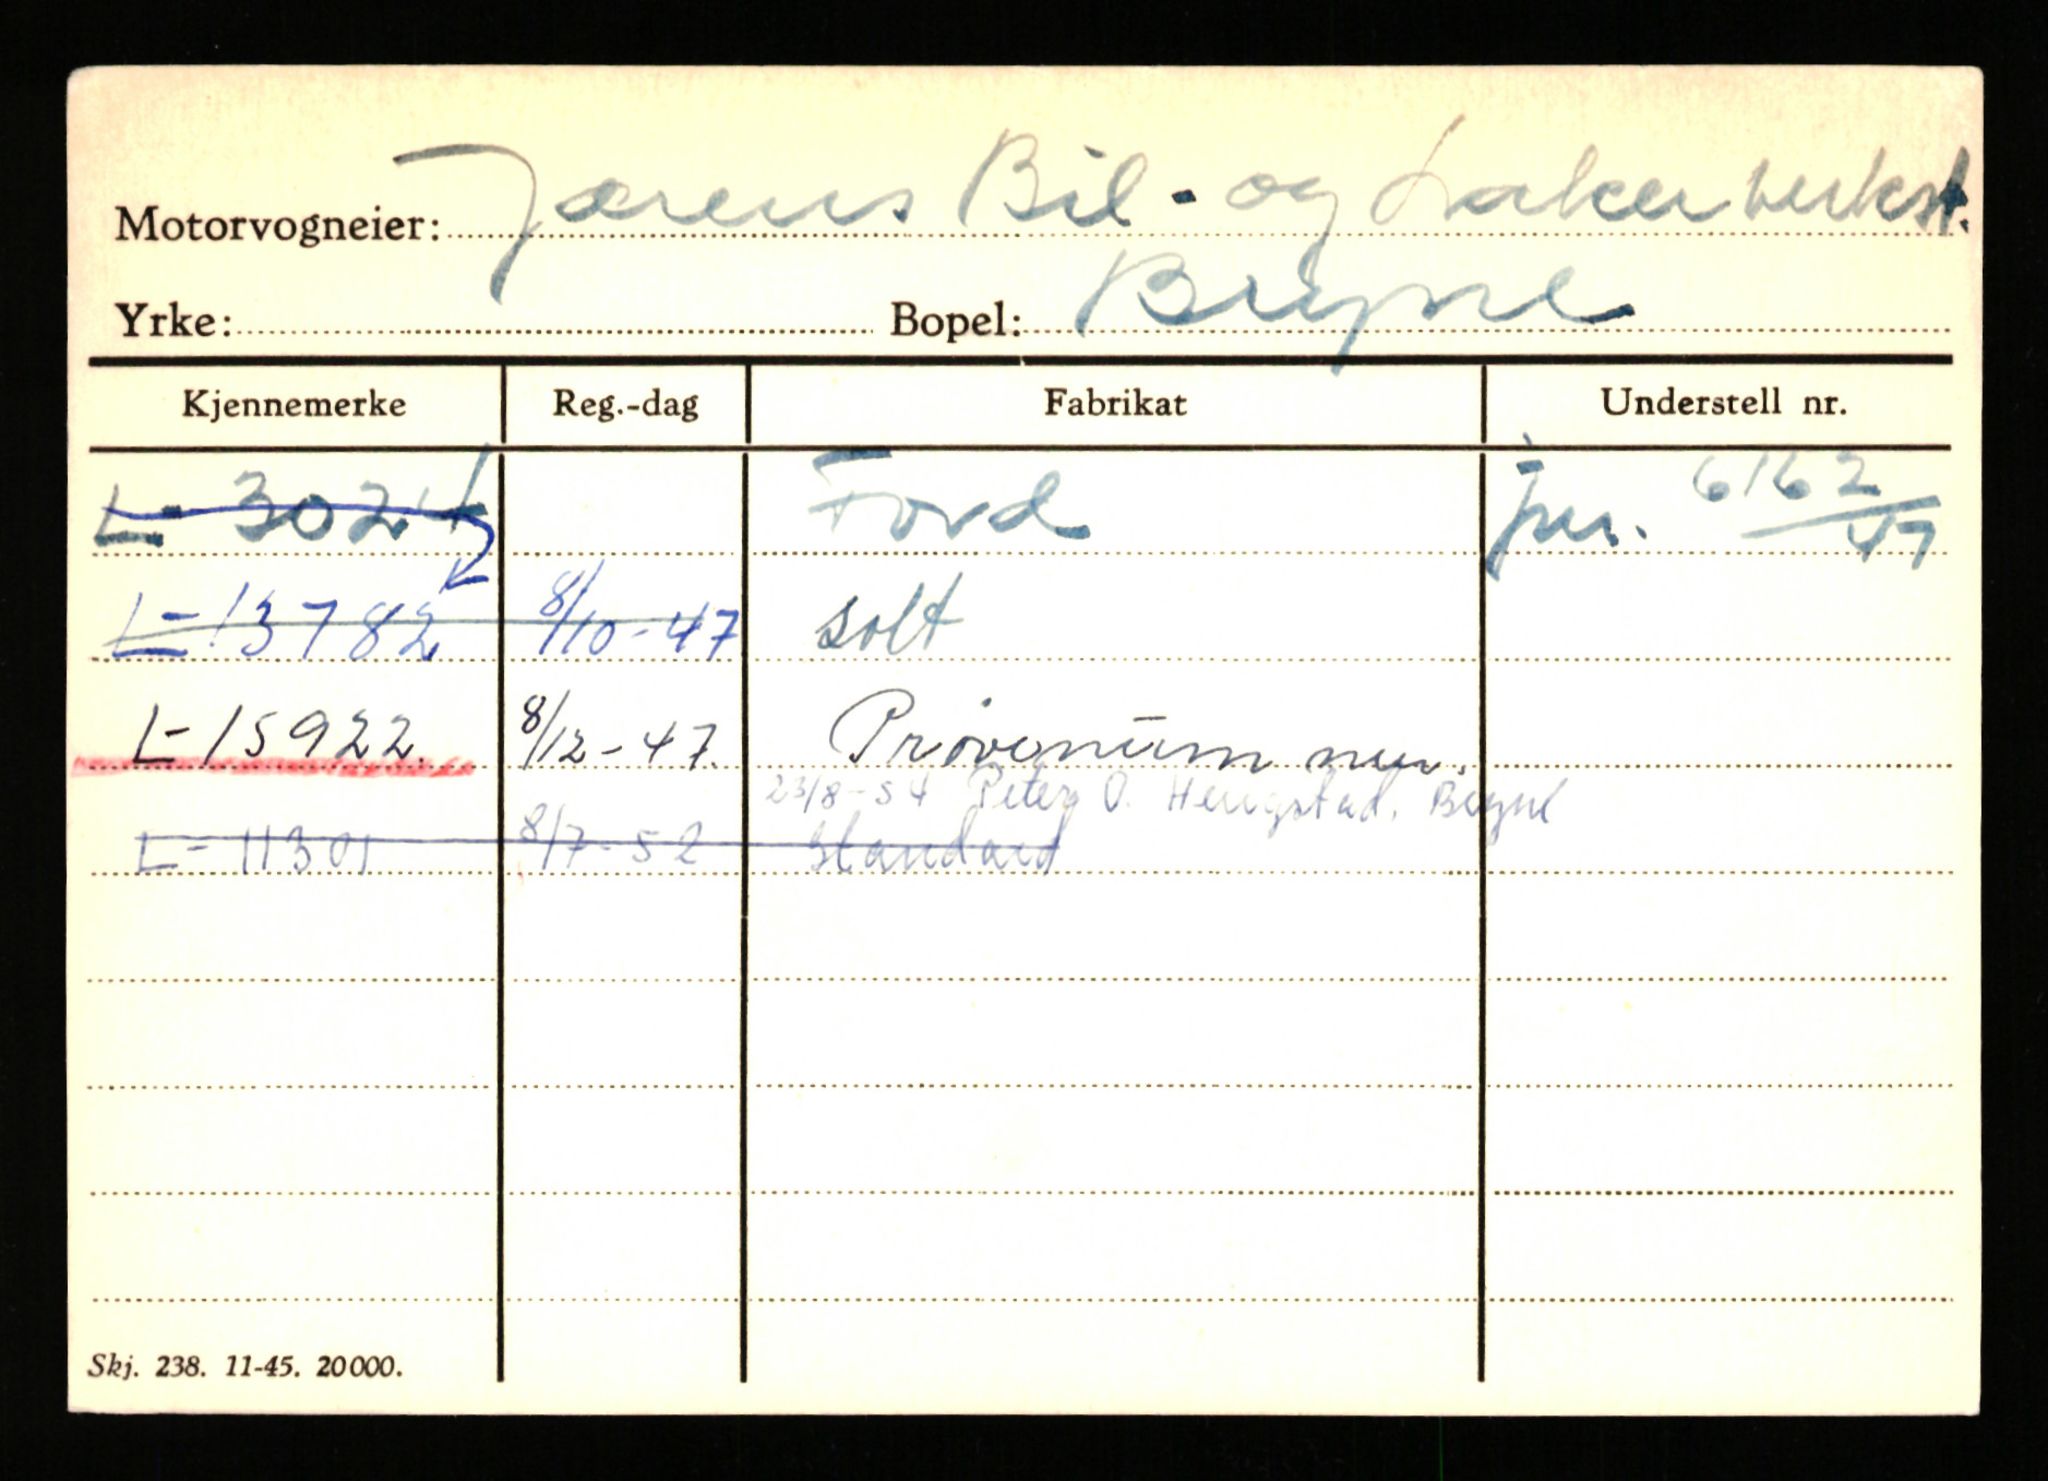 Motorvogneier: Jærens Bil- og Lakerverkst.
Yrke: Bopel: Bryne
Kjennemerke Reg.-dag Fabrikat Understell nr.
L- 3024 Ford jnr. 6162/47
L- 13782 8/10-47 solt
L- 15922. 8/12-47. Prøvenummer.
23/8-54 Peter O. Bryne
L- 11301 8/7-52 Standard
Skj. 238. 11-45. 20000.